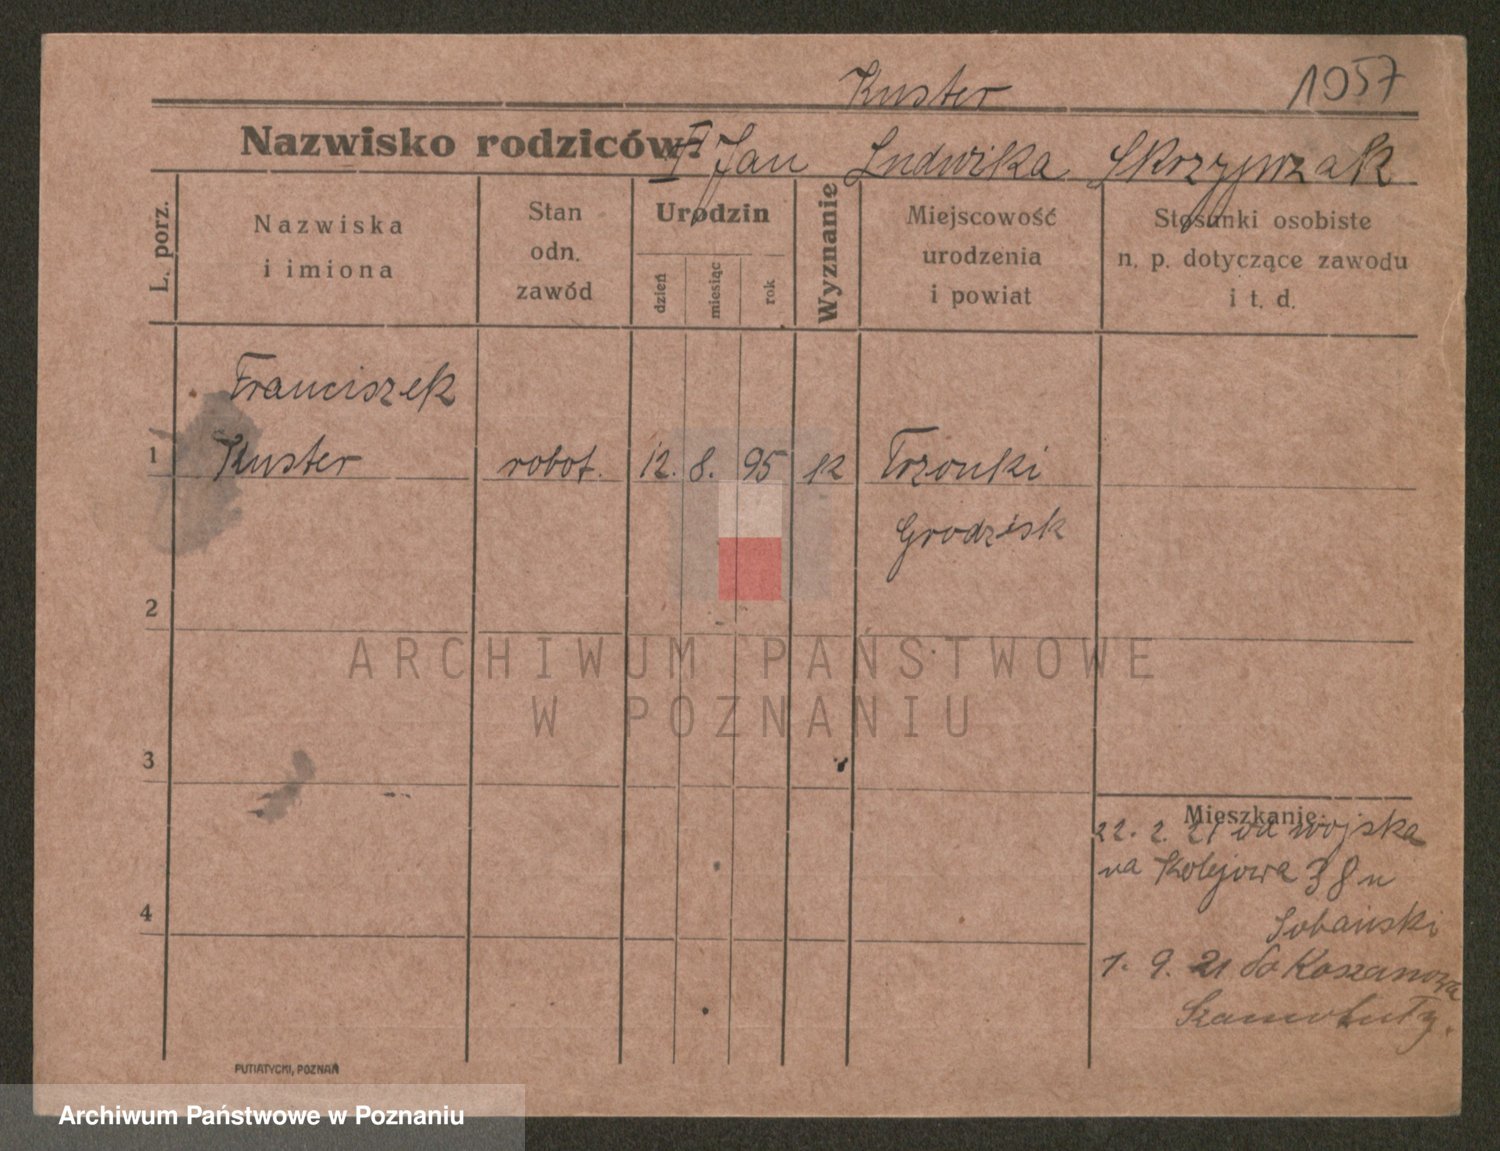 Kuster 1057
Nazwisko rodziców: Jan Ludwika Skrzypczak
L. porz.
Nazwiska
i imiona
Stan
odn.
zawód
Urodzin
dzień
miesiąc
rok
Wyznanie
Miejscowość
urodzenia
i powiat
Stosunki osobiste
n. p. dotyczące zawodu
i t. d.
Franciszek
1 Kuster robot. 12. 8. 95 k Trzonki
Grodzisk
2
ARCHIWUM PAŃSTWOWE
W POZNANIU
3
Mieszkanie:
22. 2. 21 od wojska
na Kolejowa 38 u
Sobański
4
1. 9. 21 do Kaszanowa
Szamotuły.
PUTIATYCKI, POZNAŃ
Archiwum Państwowe w Poznaniu